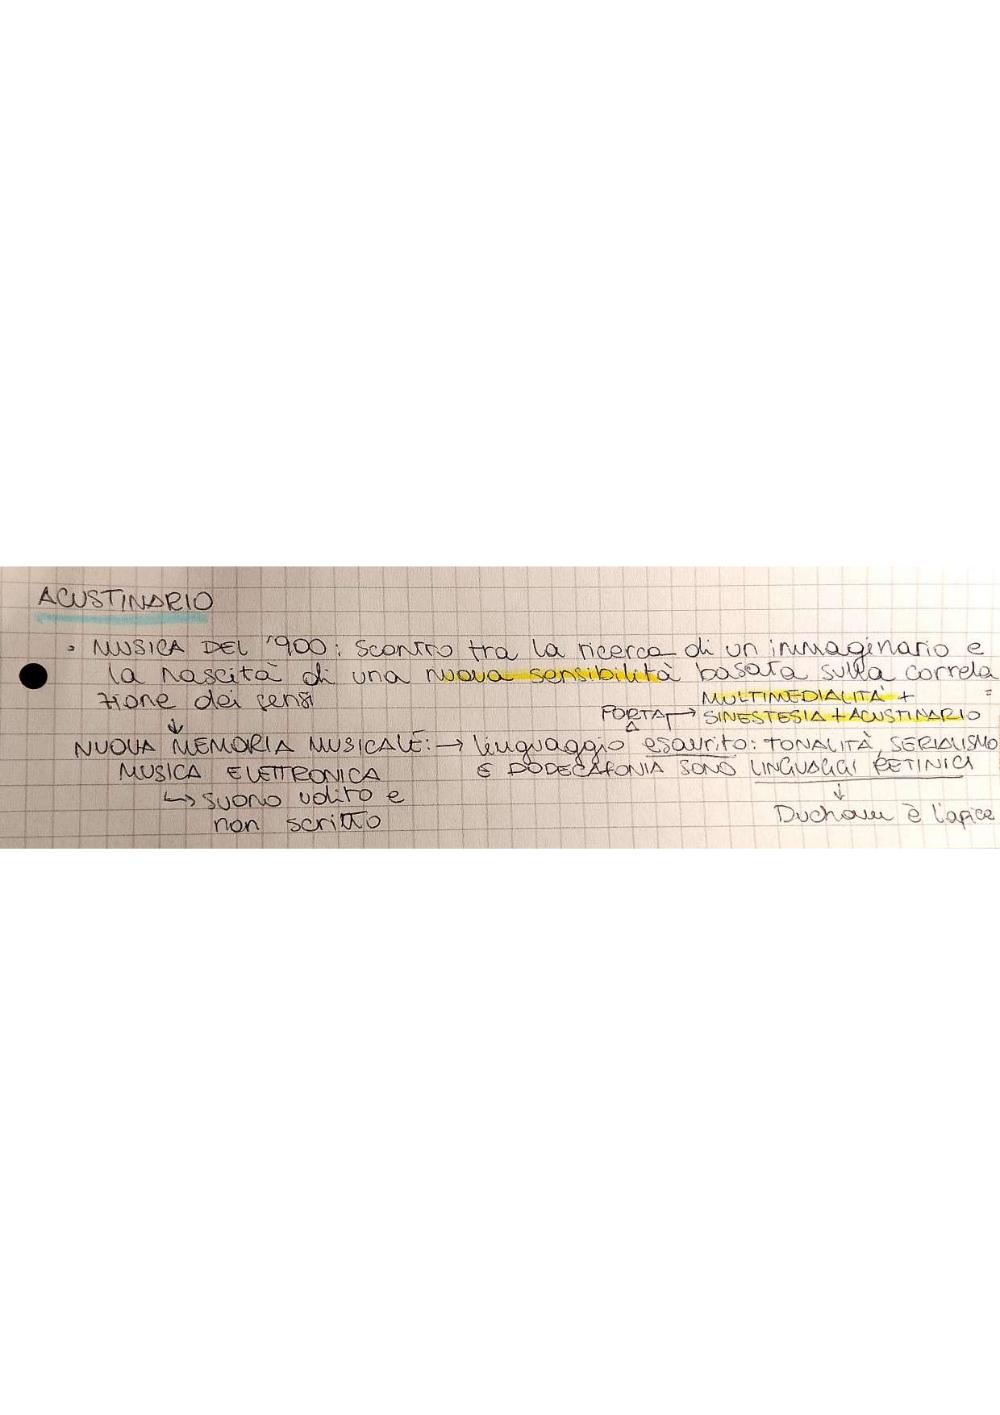 ACUSTINARIO
• MUSICA DEL '900: scontro tra la ricerca di un immaginario e
la nascita di una nuova sensibilità basata sulla correla
zione dei sensi
MULTIMEDIALITÀ +
PORTA → SINESTESIA + ACUSTINARIO
NUOVA MEMORIA MUSICALE: → linguaggio esaurito: TONALITÀ, SERIALISMO
MUSICA ELETTRONICA E DODECAFONIA SONO LINGUAGGI RETINICI
↳ SUONO udito e
non scritto
Ducham è l'apice